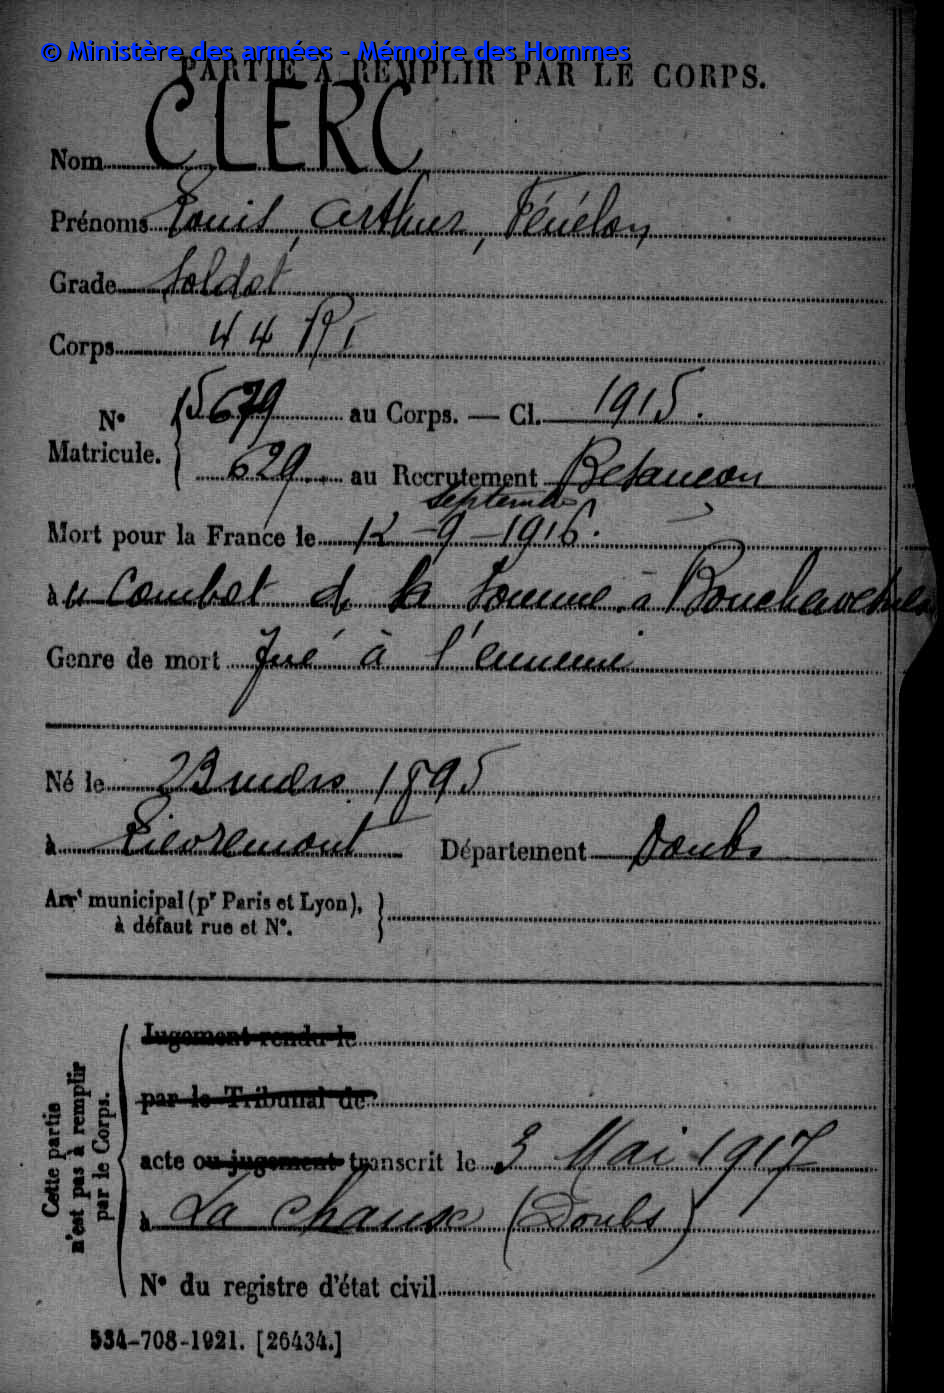 © Ministère des armées - Mémoire des Hommes
PARTIE À REMPLIR PAR LE CORPS.
Nom CLERC
Prénoms Louis, Arthur, Fénélon
Grade Soldat
Corps 44 RI
N° Matricule. { 5679 au Corps. — Cl. 1915.
629 au Recrutement Besancon
septembre
Mort pour la France le 12 - 9 - 1916.
à u combat de la Somme à Bouchavesnes
Genre de mort Tué à l'ennemi
Né le 23 mars 1895
à Lievremont Département Doubs
Arrt municipal (pr Paris et Lyon),
à défaut rue et N°.
Cette partie n'est pas à remplir par le Corps.
Jugement rendu le
par le Tribunal de
acte ou jugement transcrit le 3 Mai 1917
à La Chaux (Doubs)
N° du registre d'état civil
534-708-1921. [26434.]